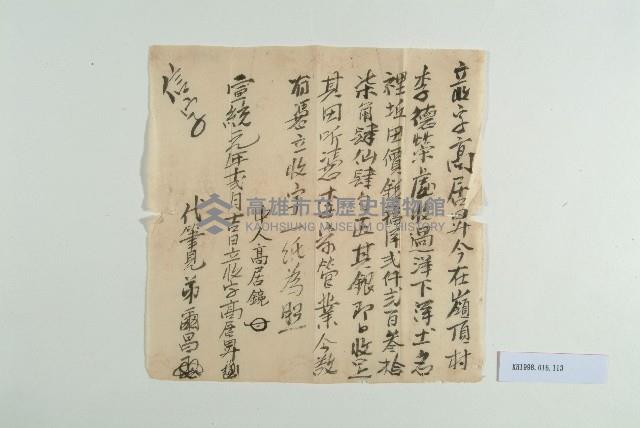 立收字高居昇今在嶺頂村
李德榮處收過洋下洋土名
裡坵田價銀 洋弍仟弍百叁拾
柒角肆仙肆 正其銀即日收完
其田听憑 李榮管業今欲
有憑立收字一纸為照
中人高居鏡
宣統元年弍月吉日立收字高居昇
代筆見弟爾昌
信字
高雄市立歷史博物館
KAOHSIUNG MUSEUM OF HISTORY
KH1998.016.113